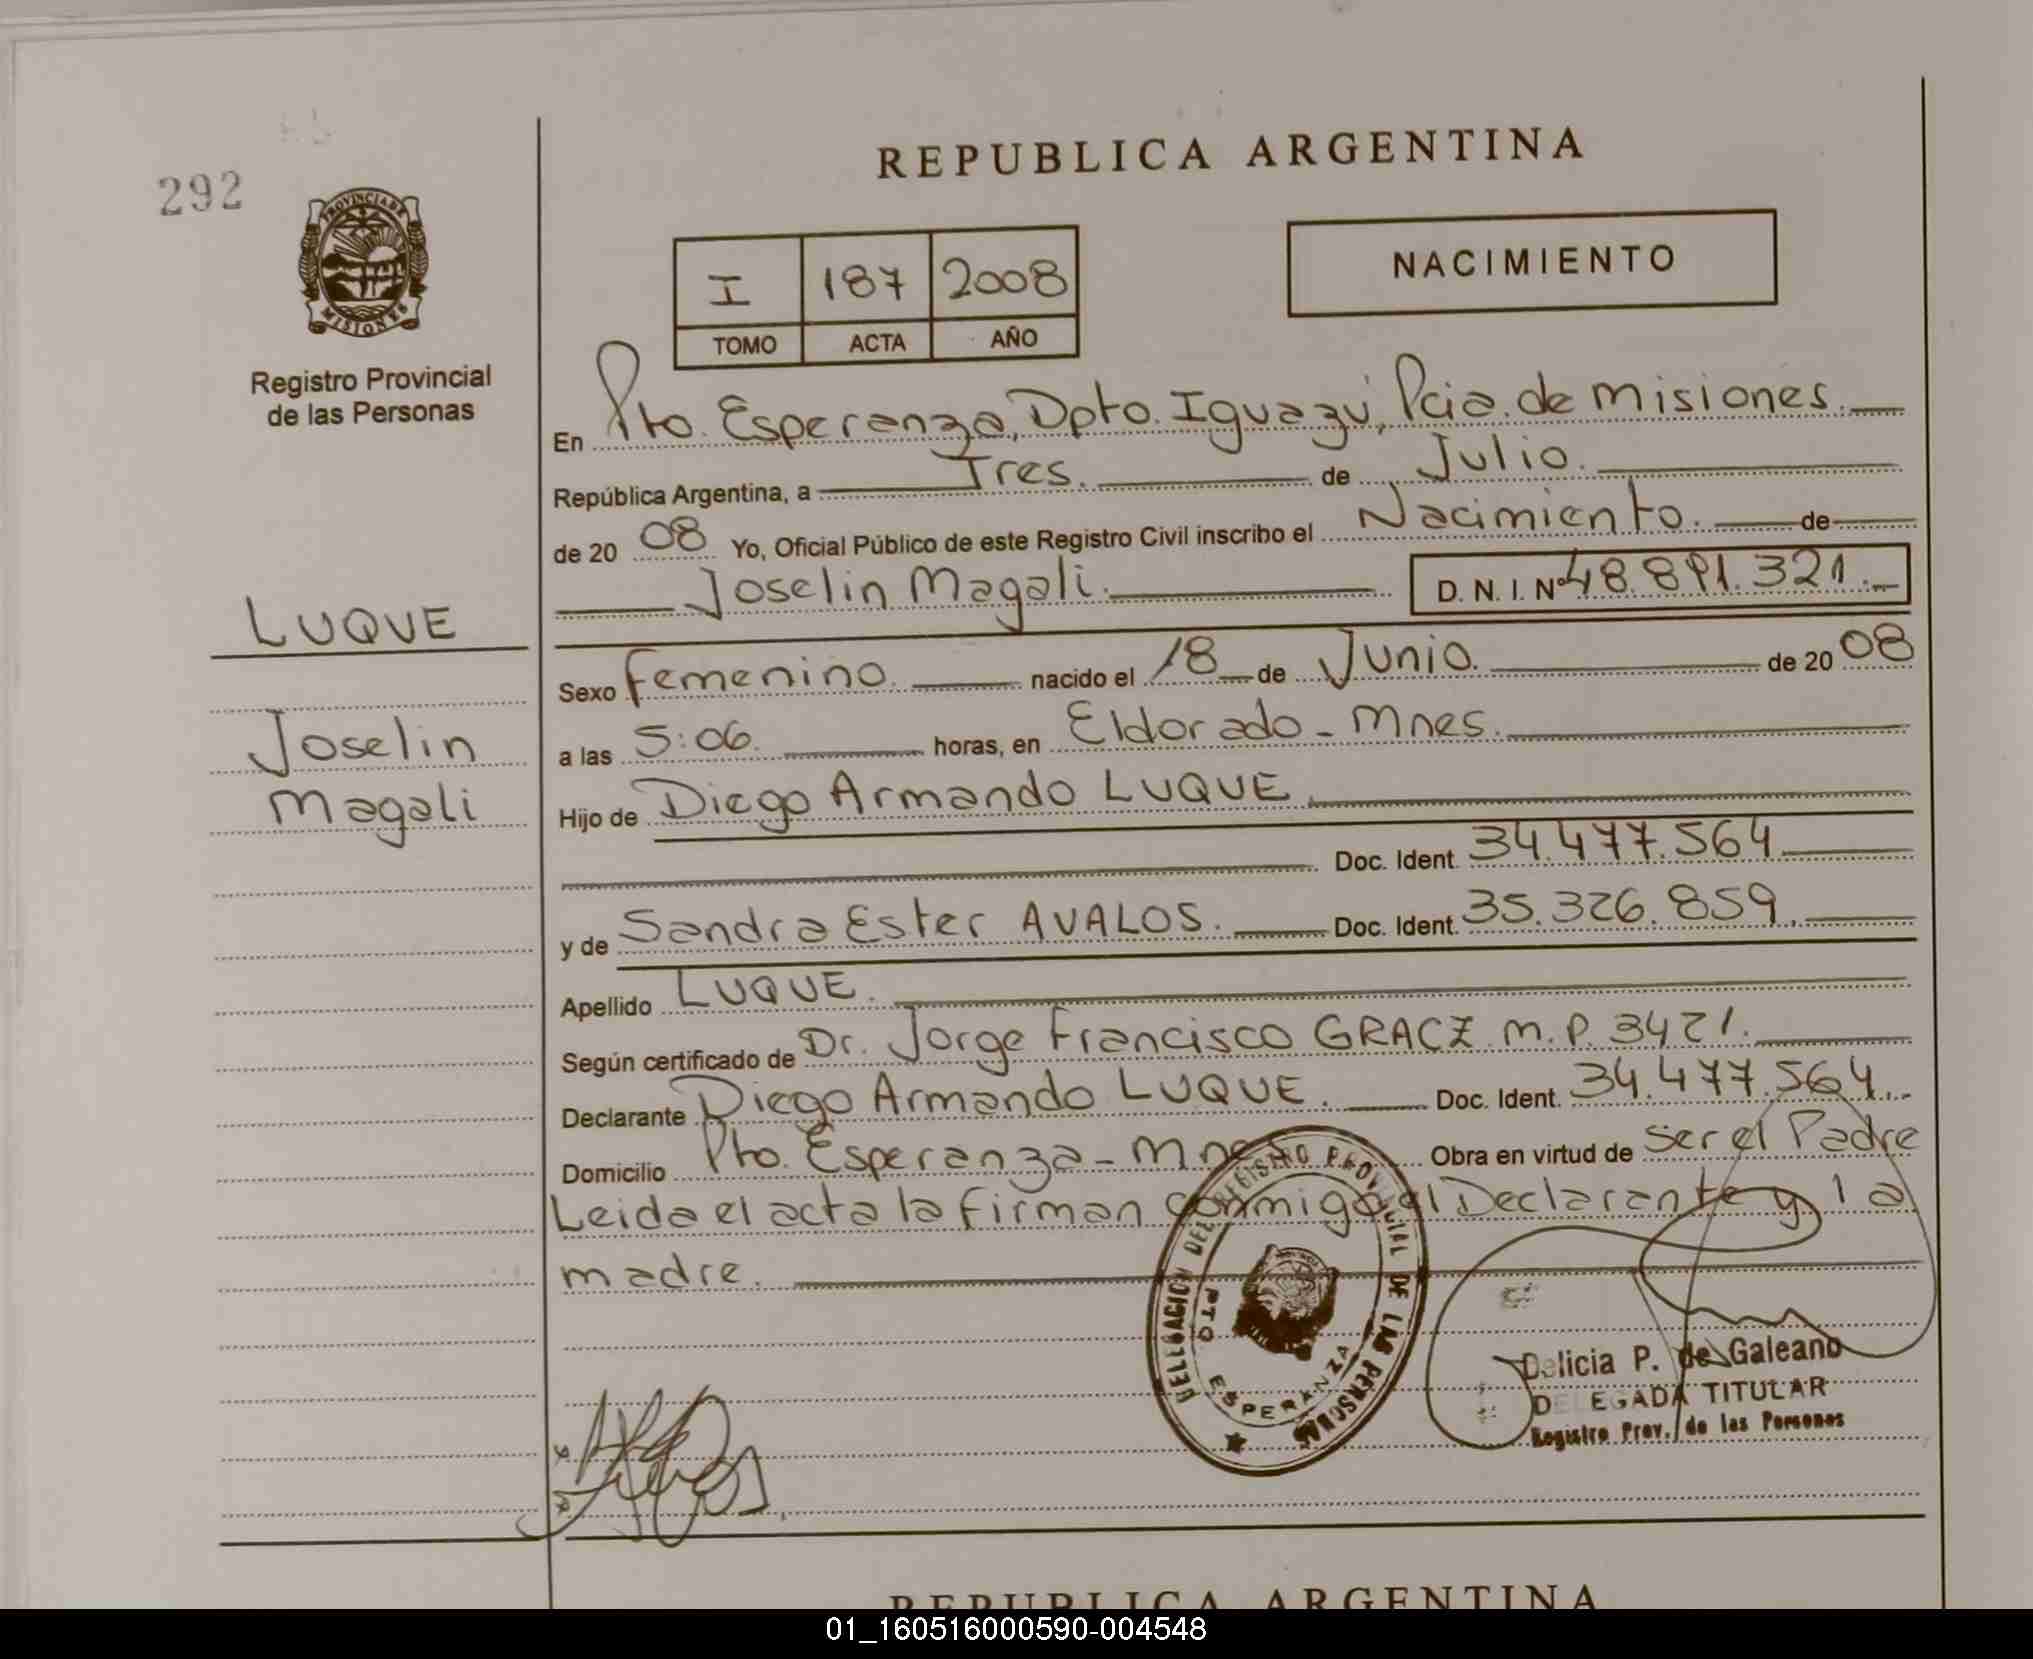 REPUBLICA ARGENTINA
292
PROVINCIA DE
MISIONES
Registro Provincial
de las Personas
I 187 2008
TOMO ACTA AÑO
NACIMIENTO
En Pto. Esperanza, Dpto. Iguazú, Pcia. de Misiones.
República Argentina, a Tres. de Julio.
de 20 08 Yo, Oficial Público de este Registro Civil inscribo el Nacimiento. de
Joselin Magali. D. N. I. Nº 48.891.321.
LUQUE
Joselin
Magali
Sexo Femenino. nacido el 18 de Junio. de 20 08
a las 5:06. horas, en Eldorado - Mnes.
Hijo de Diego Armando LUQUE
Doc. Ident. 34.477.564
y de Sandra Ester AVALOS. Doc. Ident. 35.326.859.
Apellido LUQUE.
Según certificado de Dr. Jorge Francisco GRACZ M.P. 3421.
Declarante Diego Armando LUQUE. Doc. Ident. 34.477.564.
Domicilio Pto. Esperanza - Mnes. Obra en virtud de ser el Padre
Leida el acta la firman conmigo el Declarante y la
madre.
DELEGACION DEL REGISTRO PROVINCIAL DE LAS PERSONAS
PTO. ESPERANZA
Delicia P. de Galeano
DELEGADA TITULAR
Registro Prov. de las Personas
REPUBLICA ARGENTINA
01_160516000590-004548